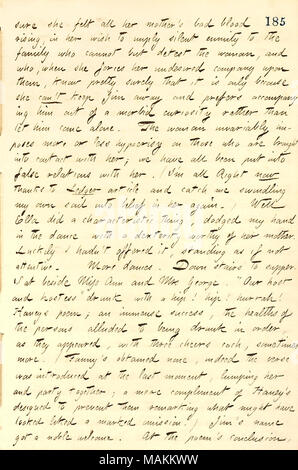 185
sure she felt all her mother's bad blood
rising, in her wish to imply silent enmity to the
family who cannot but detest the woman, and
who, when she forces her undesired company upon
them, know pretty surely that it is only because
she can't keep Jim away and prefers accompany-
ing him out of a morbid curiosity rather than
let him come alone. The woman invariably im-
poses more or less hypocrisy on those who are brought
into contact with her; we have all been put into
false relations with her. (I'm all Right now
thanks to Ledger article and catch me swindling
my own soul into belief in her again.) Well
Ella did a characteristic thing; dodged my hand
in the dance with a dexterity worthy of her mother.
Luckily I hadn't offered it, standing as if not
attentive. More dances. Down stairs to supper.
Sat beside Miss Ann and Mrs. George. "Our host
and hostess" drunk with a hip! hip! hurrah!
Haney's poem; an immense success, the healths of
the persons alluded to being drunk in order,
as they appeared, with three cheers each, sometimes
more. Fanny's obtained none, indeed the verse
was introduced at the last moment, lumping her
and party together; a mere compliment of Haney's
designed to prevent their remarking what might have
looked liked a marked omission. Jim's name
got a noble welcome. At the poem's conclusion,
alamy
Image ID: MAKKWW
www.alamy.com